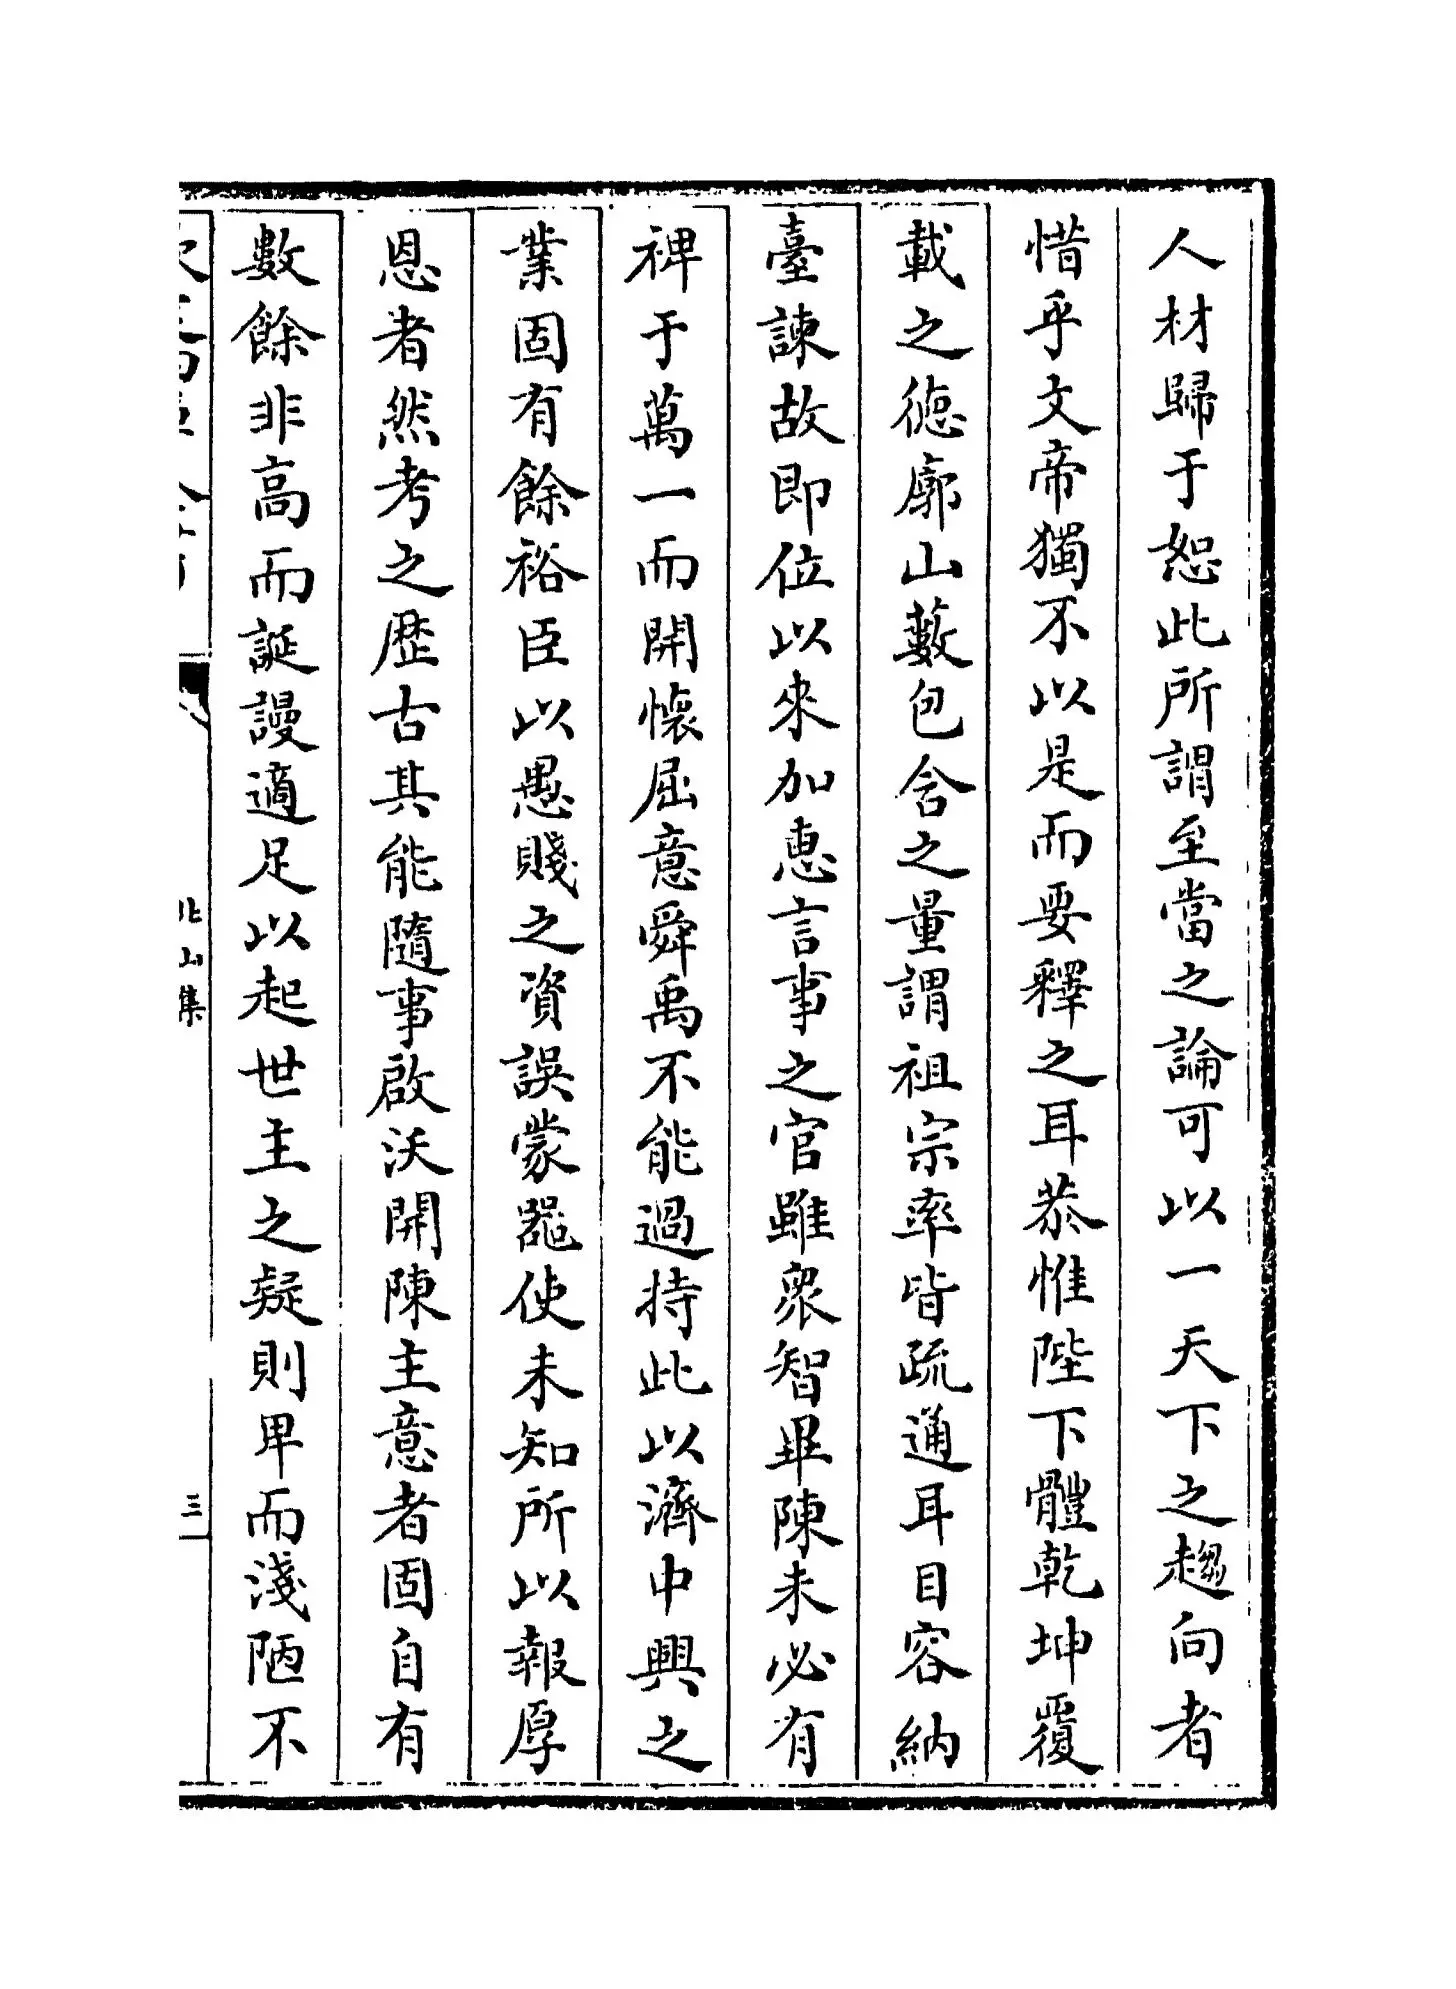 人材歸于恕此所謂至當之論可以一天下之趨向者
惜乎文帝獨不以是而要釋之耳恭惟陛下體乾坤覆
載之徳廓山藪包含之量謂祖宗率皆疏通耳目容納
臺諫故即位以來加惠言事之官雖衆智畢陳未必有
禆于萬一而開懷屈意舜禹不能過持此以濟中興之
業固有餘裕臣以愚賤之資誤蒙器使未知所以報厚
恩者然考之歴古其能隨事啟沃開陳主意者固自有
數餘非高而誕謾適足以起世主之疑則卑而淺陋不
北山集
三